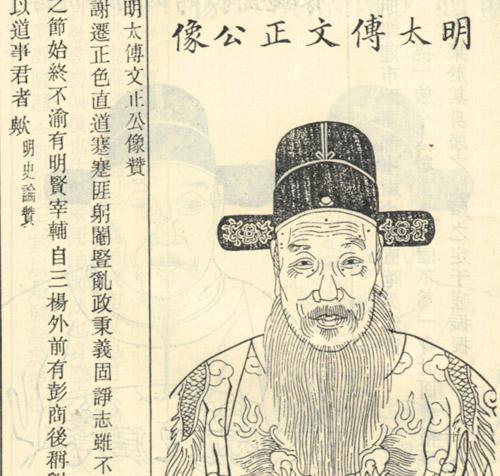 明太傅文正公像
明太傅文正公像贊
謝遷正色直道蹇蹇匪躬閹豎亂政秉義固諍志雖不
之節始終不渝有明賢宰輔自三楊外前有彭商後稱
以道事君者歟明史論贊